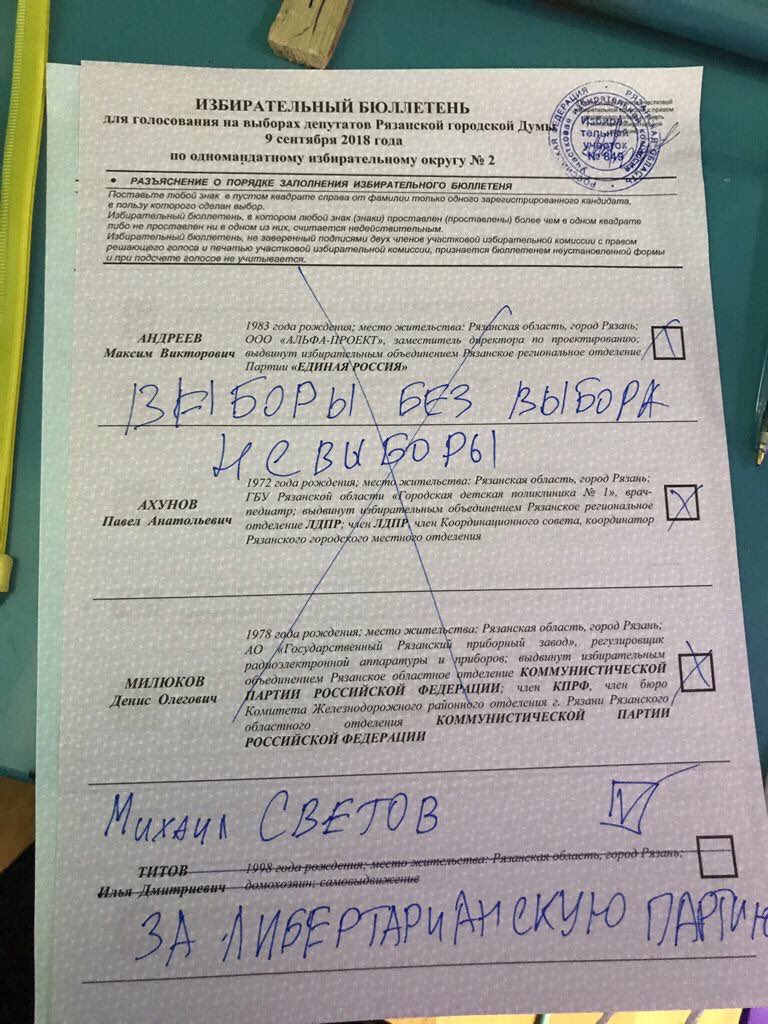 ИЗБИРАТЕЛЬНЫЙ БЮЛЛЕТЕНЬ
для голосования на выборах депутатов Рязанской городской Думы
9 сентября 2018 года
по одномандатному избирательному округу № 2
РОССИЙСКАЯ ФЕДЕРАЦИЯ РЯЗАНСКАЯ ОБЛАСТЬ
Участковая избирательная комиссия
Избира-
тельный
участок
№ 849
• РАЗЪЯСНЕНИЕ О ПОРЯДКЕ ЗАПОЛНЕНИЯ ИЗБИРАТЕЛЬНОГО БЮЛЛЕТЕНЯ
Поставьте любой знак в пустом квадрате справа от фамилии только одного зарегистрированного кандидата,
в пользу которого сделан выбор.
Избирательный бюллетень, в котором любой знак (знаки) проставлен (проставлены) более чем в одном квадрате
либо не проставлен ни в одном из них, считается недействительным.
Избирательный бюллетень, не заверенный подписями двух членов участковой избирательной комиссии с правом
решающего голоса и печатью участковой избирательной комиссии, признается бюллетенем неустановленной формы
и при подсчете голосов не учитывается.
АНДРЕЕВ
Максим Викторович
1983 года рождения; место жительства: Рязанская область, город Рязань;
ООО «АЛЬФА-ПРОЕКТ», заместитель директора по проектированию;
выдвинут избирательным объединением Рязанское региональное отделение
Партии «ЕДИНАЯ РОССИЯ»
ВЫБОРЫ БЕЗ ВЫБОРА
НЕ ВЫБОРЫ
АХУНОВ
Павел Анатольевич
1972 года рождения; место жительства: Рязанская область, город Рязань;
ГБУ Рязанской области «Городская детская поликлиника № 1», врач-
педиатр; выдвинут избирательным объединением Рязанское региональное
отделение ЛДПР; член ЛДПР, член Координационного совета, координатор
Рязанского городского местного отделения
МИЛЮКОВ
Денис Олегович
1978 года рождения; место жительства: Рязанская область, город Рязань;
АО «Государственный Рязанский приборный завод», регулировщик
радиоэлектронной аппаратуры и приборов; выдвинут избирательным
объединением Рязанское областное отделение КОММУНИСТИЧЕСКОЙ
ПАРТИИ РОССИЙСКОЙ ФЕДЕРАЦИИ; член КПРФ, член бюро
Комитета Железнодорожного районного отделения г. Рязани Рязанского
областного отделения КОММУНИСТИЧЕСКОЙ ПАРТИИ
РОССИЙСКОЙ ФЕДЕРАЦИИ
Михаил СВЕТОВ
ТИТОВ
Илья Дмитриевич
1998 года рождения; место жительства: Рязанская область, город Рязань;
домохозяин; самовыдвижение
ЗА ЛИБЕРТАРИАНСКУЮ ПАРТИЮ